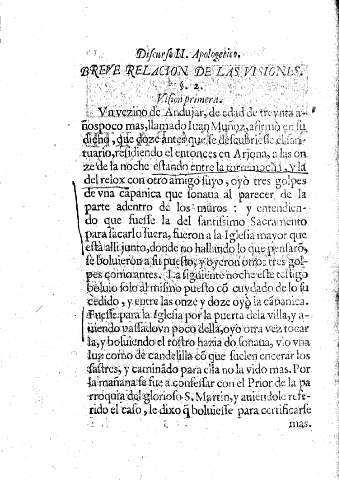 Discurso II. Apologetico.
BREVE RELACION DE LAS VISIONES.
§. 2.
Vision primera.
Vn vezino de Andujar, de edad de treynta a-
ños poco mas, llamado Iuan Muñoz, afirmò en su
dicho, que doze antes que se descubriesse el san-
tuario, residiendo el entonces en Arjona, a las on
ze de la noche estando entre la y la
del relox con otro amigo suyo, oyò tres golpes
de vna cãpanica que sonaua al parecer de la
parte adentro de los muros: y entendien-
do que fuesse la del santissimo Sacramento
para sacarlo fuera, fueron a la Iglesia mayor que
està alli junto, donde no hallando lo que pensarõ,
se boluieron a su puesto, y oyeron otros tres gol-
pes como antes. La siguiente noche este testigo
boluio solo al mismo puesto cõ cuydado de lo su
cedido, y entre las onze y doze oyò la cãpanica.
Fuesse para la Iglesia por la puerta de la villa, y a-
uiendo passado vn poco della, oyò otra vez tocar
la, y boluiendo el rostro hazia do sonaua, vio vna
luz como de candelilla cõ que suelen encerar los
sastres, y caminãdo para ella no la vido mas. Por
la mañana se fue a confessar con el Prior de la pa
rroquia del glorioso S. Martin, y auiendole refe-
rido el caso, le dixo q̃ boluiesse para certificarse
mas.